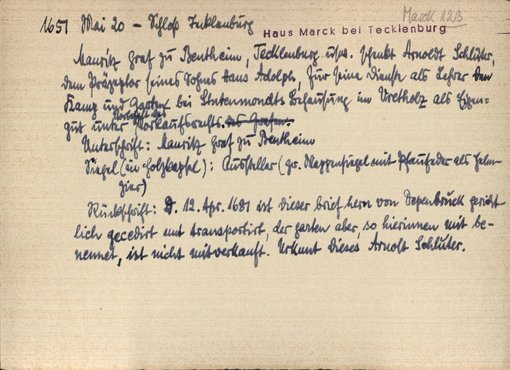 Mark 123
1651 Mai 20 - Schloß Tecklenburg
Haus Marck bei Tecklenburg
Mauritz Graf zu Bentheim, Tecklenburg usw. schenkt Arnoldt Schlüter,
dem Präzeptor seines Sohnes Hans Adolph, für seine Dienste als Lehrer den
Kamp und Garten bei Stutenmondts Behausung im Uretholz als Eigen-
gut unter Vorbehalt des Vorkaufsrechts.
Unterschrift: Mauritz Graf zu Bentheim
Siegel (in Holzkapsel): Aussteller (gr. Wappensiegel mit Pfaufeder als Helm-
zier)
Rückschrift: D. 12. Apr. 1681 ist dieser brief hern von Depenbruck gericht-
lich gecedirt und transportirt, der garten aber, so hierinnen mit be-
nennet, ist nicht mitverkauft. Urkunt dieses Arnolt Schlüter.